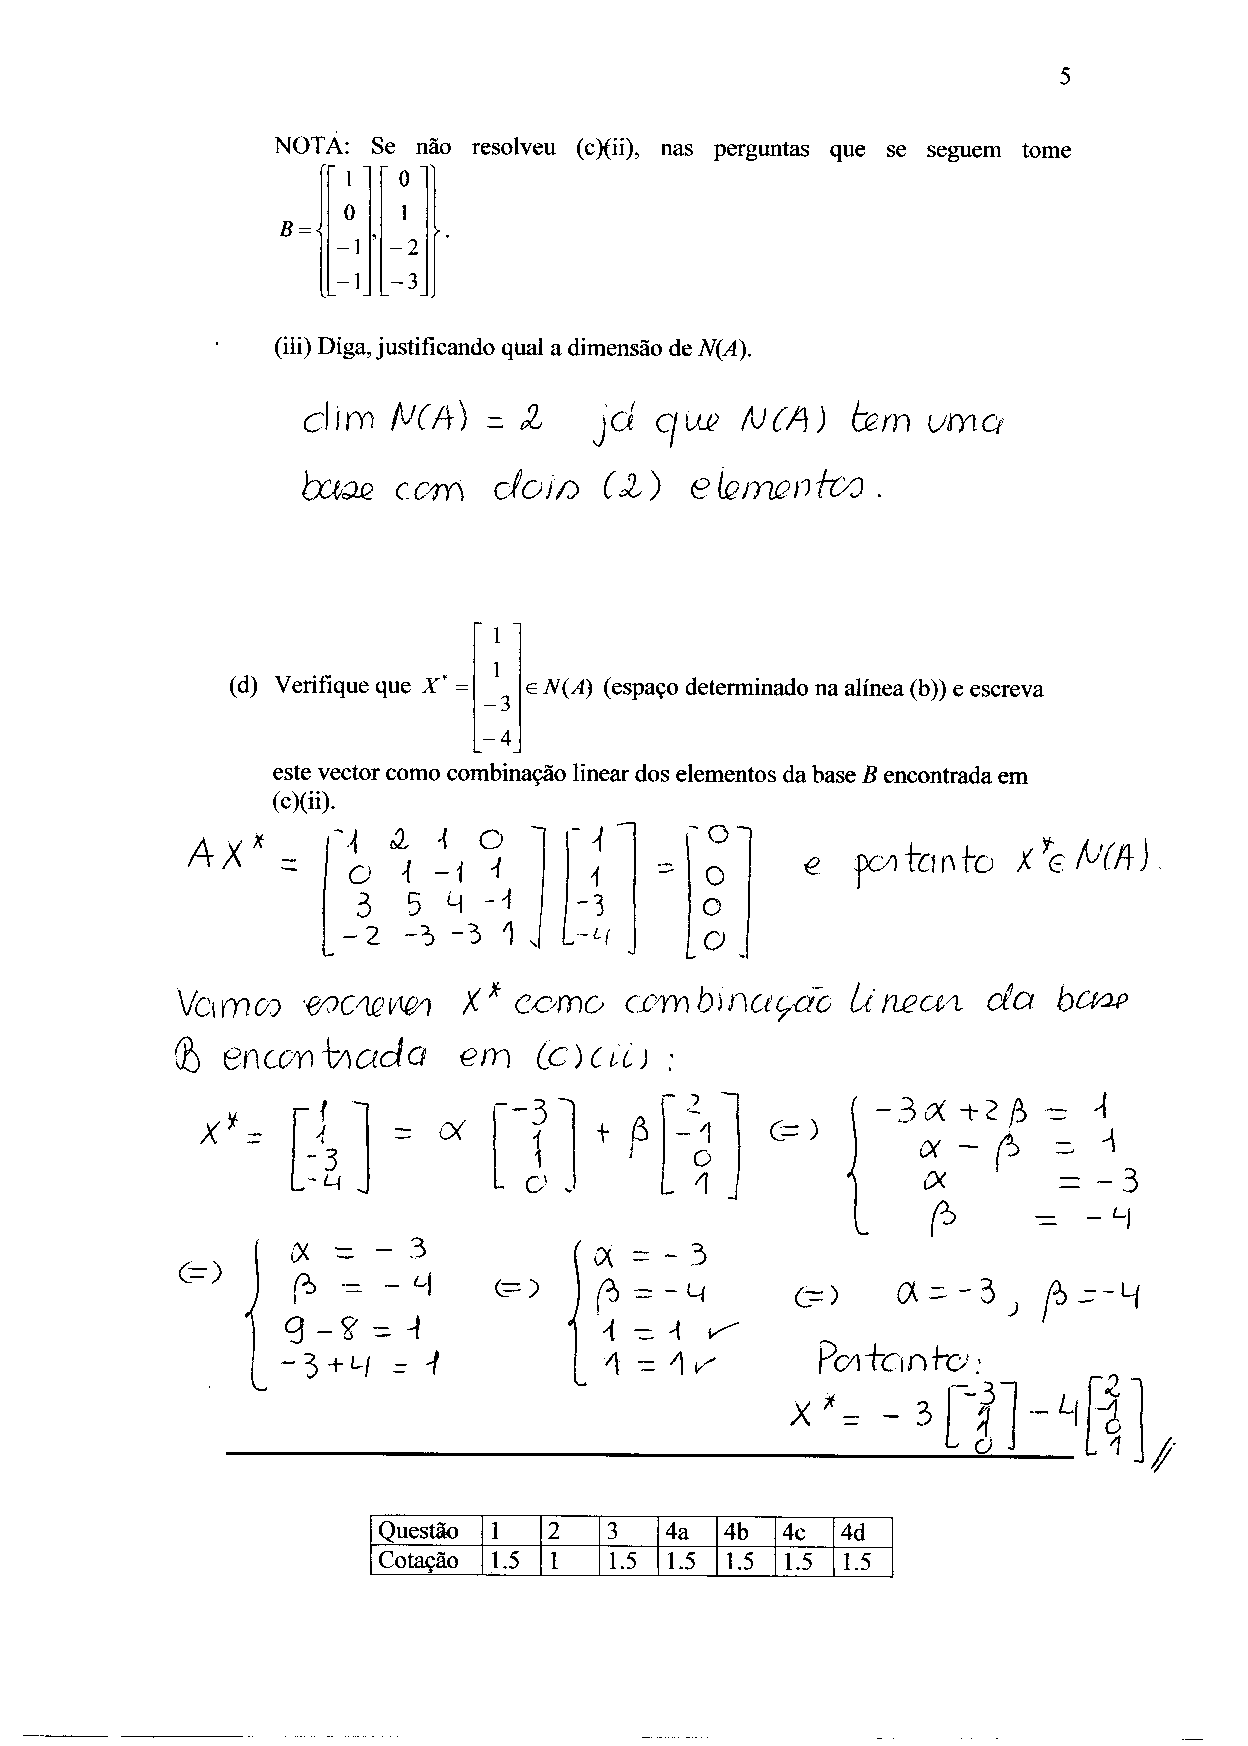 5
NOTA: Se não resolveu (c)(ii), nas perguntas que se seguem tome
B = {[1 0 -1 -1], [0 1 -2 -3]}.
(iii) Diga, justificando qual a dimensão de N(A).
dim N(A) = 2 já que N(A) tem uma
base com dois (2) elementos.
(d) Verifique que X* = [1 1 -3 -4] ∈ N(A) (espaço determinado na alínea (b)) e escreva
este vector como combinação linear dos elementos da base B encontrada em
(c)(ii).
AX* = [1 2 1 0; 0 1 -1 1; 3 5 4 -1; -2 -3 -3 1] [1 1 -3 -4] = [0 0 0 0] e portanto X* ∈ N(A).
Vamos escrever X* como combinação linear da base
B encontrada em (c)(ii) :
X* = [1 1 -3 -4] = α [-3 1 1 0] + β [2 -1 0 1] (=) { -3α + 2β = 1
α - β = 1
α = -3
β = -4
(=) { α = -3
β = -4
9 - 8 = 1
-3 + 4 = 1
(=) { α = -3
β = -4
1 = 1 ✓
1 = 1 ✓
(=) α = -3, β = -4
Portanto:
X* = -3 [-3 1 1 0] - 4 [2 -1 0 1] //
Questão 1 2 3 4a 4b 4c 4d
Cotação 1.5 1 1.5 1.5 1.5 1.5 1.5